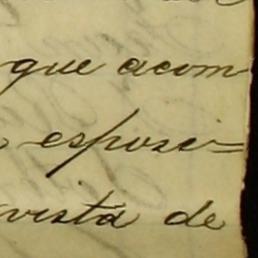 que acom
esposi=
vista de